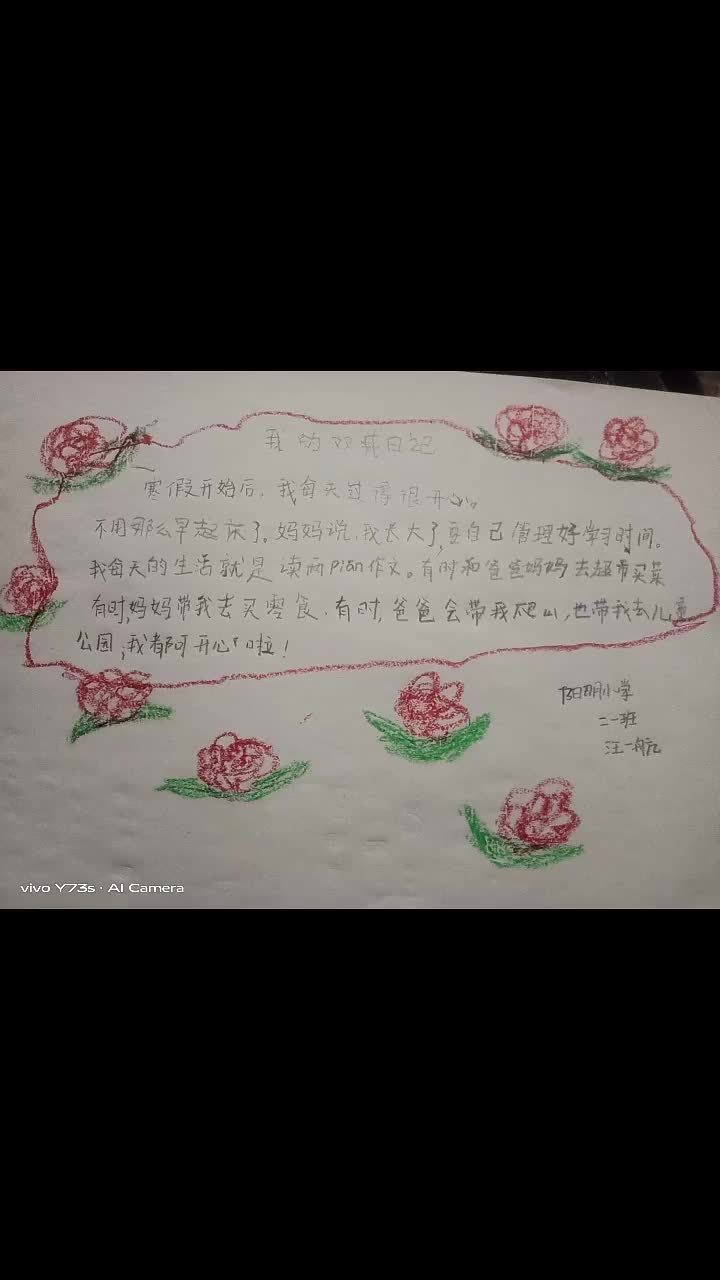 我的双减日记
寒假开始后，我每天过得很开心。
不用那么早起床了。妈妈说，我长大了，要自己管理好学习时间。
我每天的生活就是读两pian作文。有时和爸爸妈妈去超市买菜
有时，妈妈带我去买零食，有时，爸爸会带我爬山，也带我去儿童
公园，我都可开心啦！
阳明小学
二一班
汪一航
vivo Y73s · AI Camera